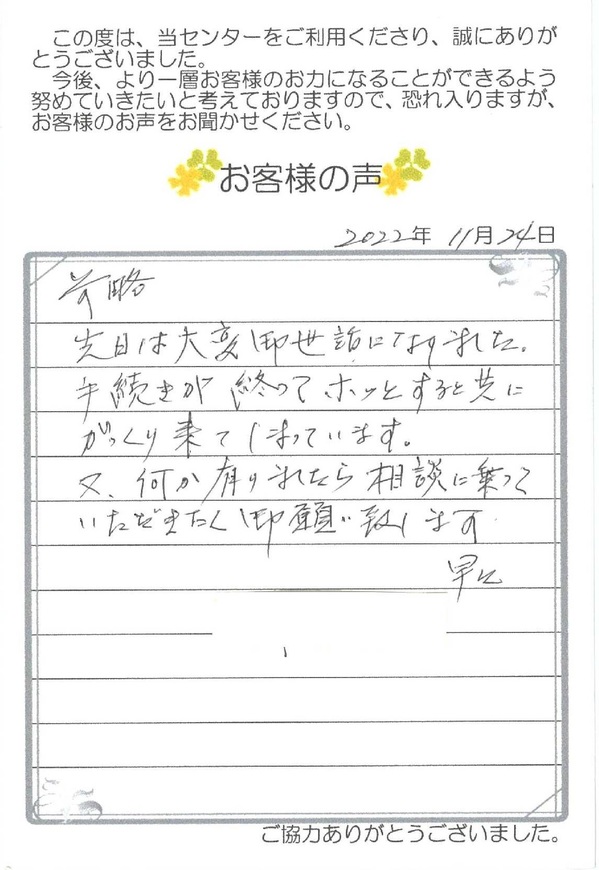 この度は、当センターをご利用くださり、誠にありが
とうございました。
今後、より一層お客様のお力になることができるよう
努めていきたいと考えておりますので、恐れ入りますが、
お客様のお声をお聞かせください。
お客様の声
2022年 11月 24日
前略
先日は大変御世話になりました。
手続きが 終ってホッとすると共に
がっくり来てしまっています。
又、何か有りましたら相談に乗って
いただきたく御願い致します
早々
ご協力ありがとうございました。